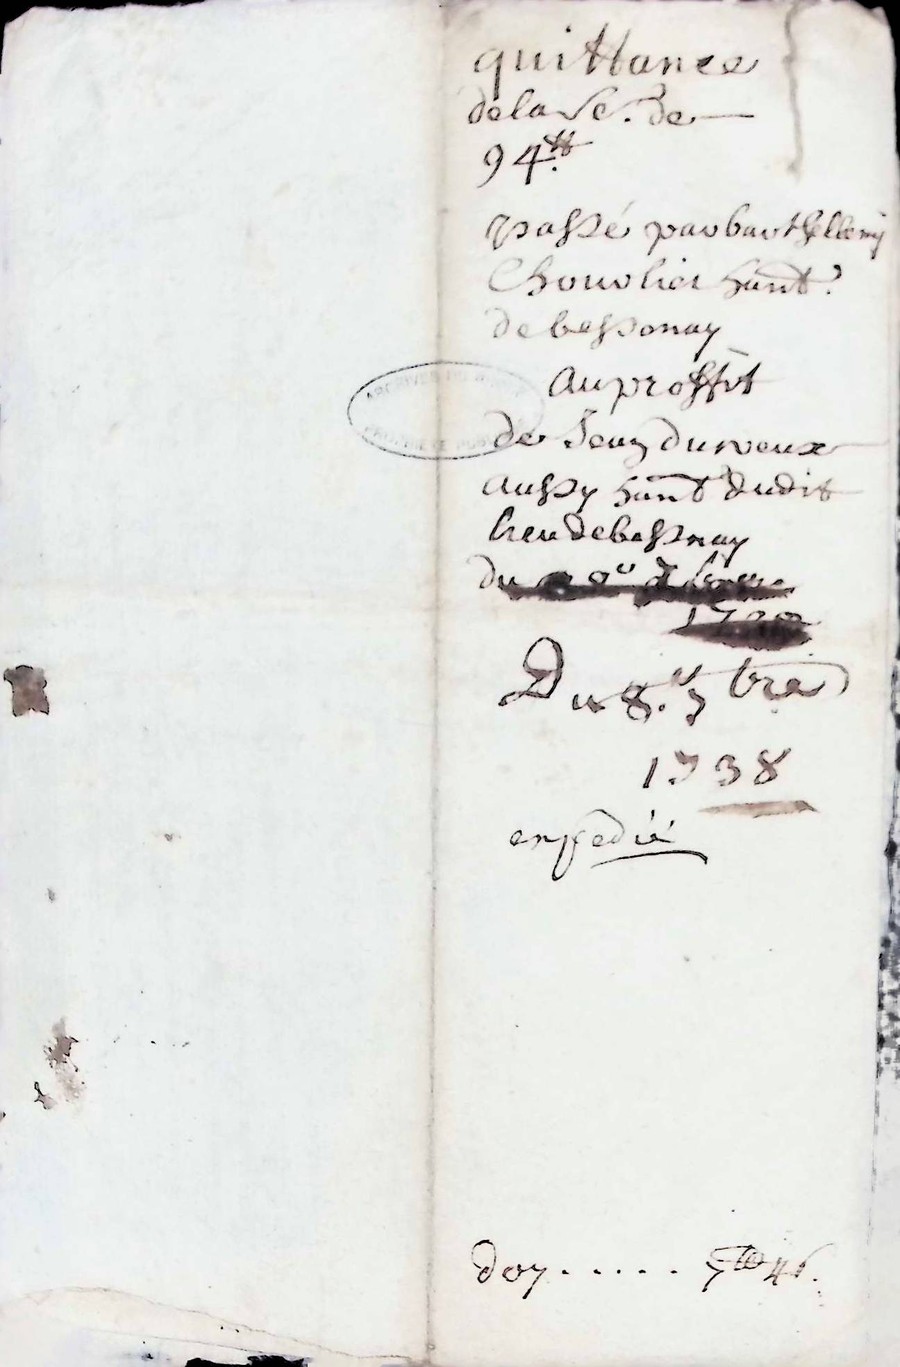 quittance
de la Sc. de
94tt.
passé par barthellemy
Chouvlier hant.
de bessonay
au proffit
de Jean Durveux
aussy hant dudit
lieu de bessnay
Du
1730
Du 8.e 7bre
1738
expedié
ARCHIVES DU
PROPRIÉTÉ PUBLIQUE
doy..... 5tt 4s.